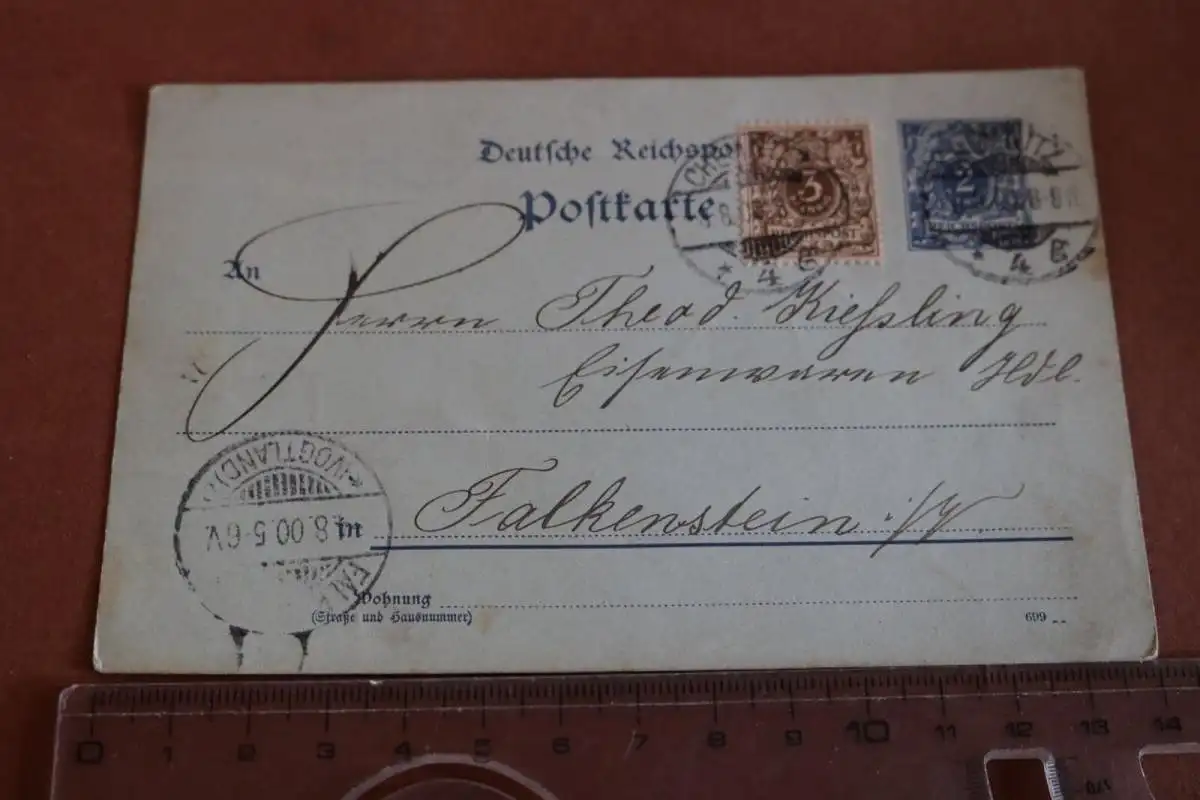 Deutsche Reichspost
Postkarte
3
REICHSPOST
2
4 E
4 E
An
Herrn Theod. Kießling
Eisenwaren Hdl.
*(VOGTLAND)
8.00.5-6V.
in Falkenstein i/V.
Wohnung
(Straße und Hausnummer)
699
0 1 2 3 4 5 6 7 8 9 10 11 12 13 14